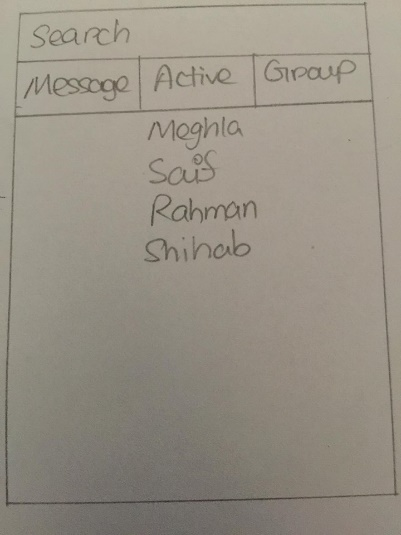 Search
Message Active Group
Meghla
Saif
Rahman
Shihab